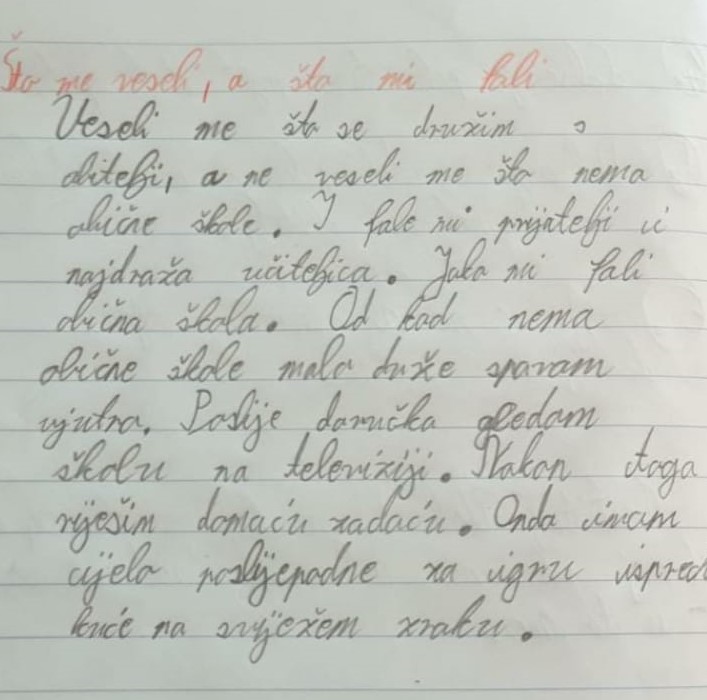 Što me veseli, a šta mi fali
Veseli me što se družim s
obitelji, a ne veseli me što nema
obične škole. I fale mi prijatelji i
najdraža učiteljica. Jako mi fali
obična škola. Od kad nema
obične škole malo duže spavam
ujutro. Poslije doručka gledam
školu na televiziji. Nakon toga
riješim domaću zadaću. Onda imam
cijelo poslijepodne za igru ispred
kuće na svježem zraku.